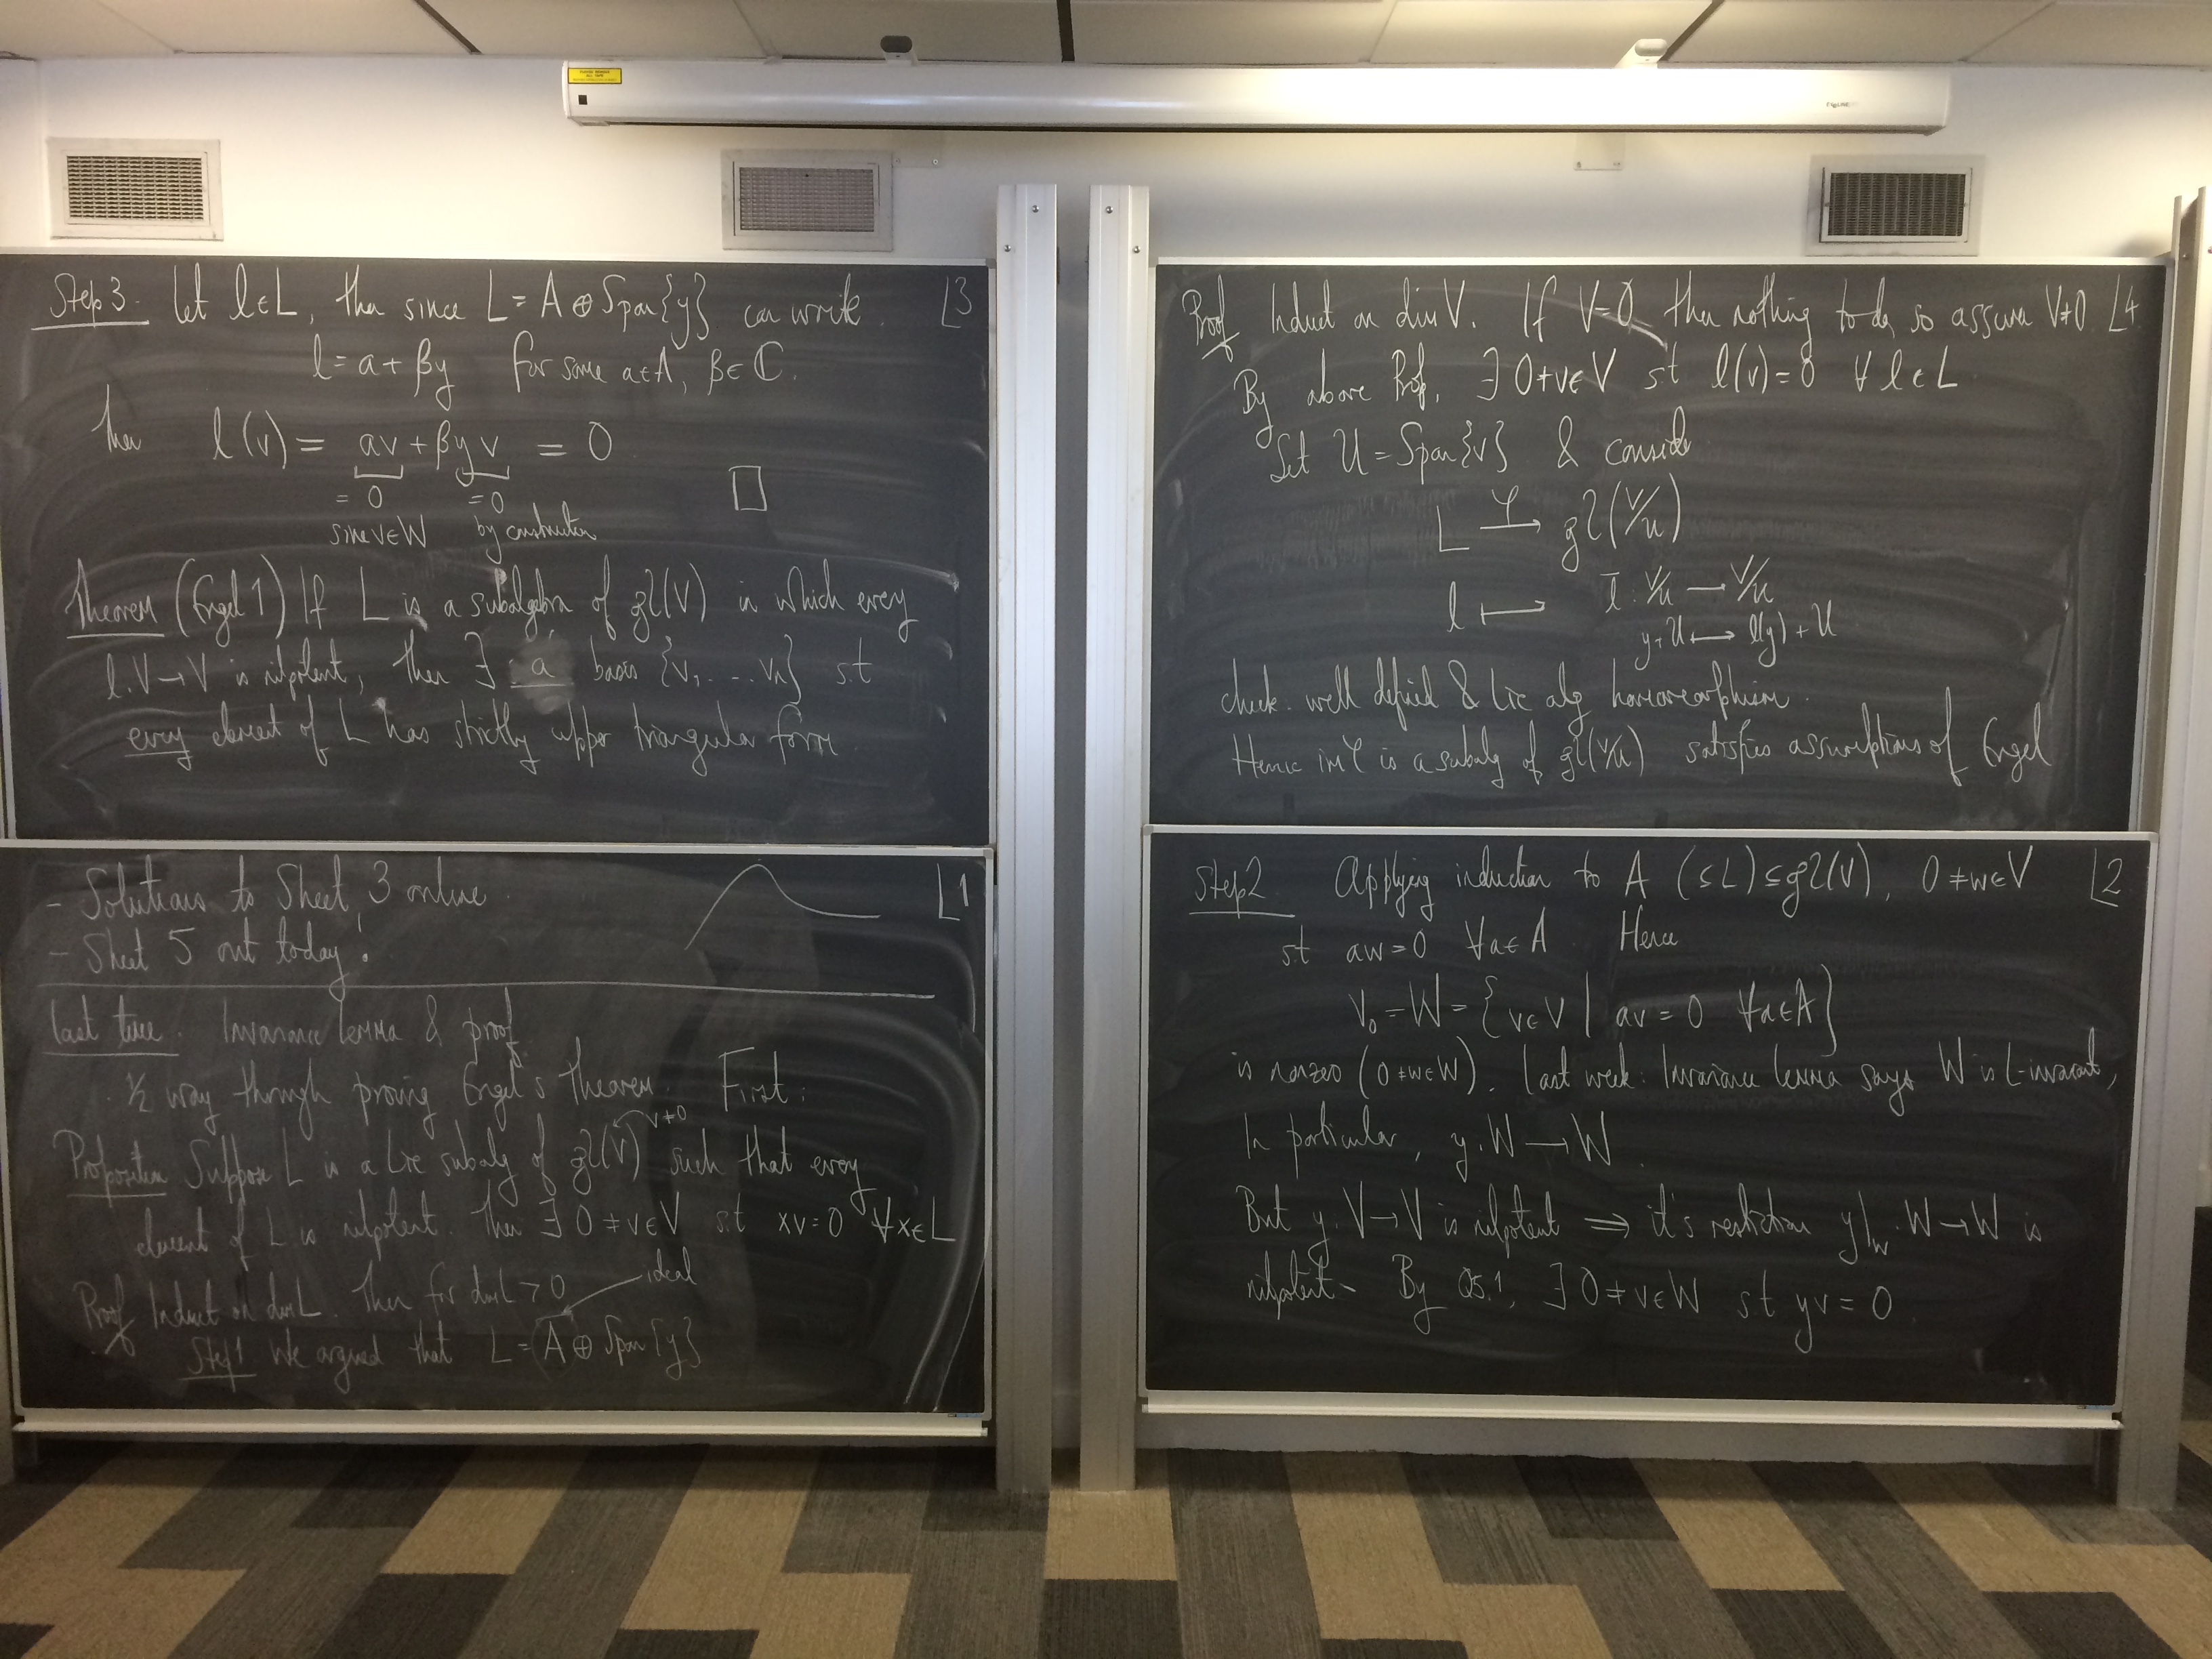 - Solutions to Sheet 3 online.
- Sheet 5 out today!
L1
Last time. Invariance lemma & proof
½ way through proving Engel's Theorem. First:
Proposition Suppose L is a Lie subalg of gl(V) such that every
V≠0
element of L is nilpotent. Then ∃ 0≠v∈V s.t xv=0 ∀x∈L
Proof Induct on dim L. Then for dim L > 0
ideal
Step 1 We argued that L = A ⊕ Span{y}
Step 2 Applying induction to A (≤L) ≤ gl(V), 0≠w∈V
L2
st aw=0 ∀a∈A. Hence
V₀ = W = {v∈V | av = 0 ∀a∈A}
is nonzero (0≠w∈W). Last week: Invariance lemma says W is L-invariant,
In particular, y: W → W.
But y: V→V is nilpotent ⟹ it's restriction y|_W : W→W is
nilpotent. By Q5.1, ∃ 0≠v∈W st yv=0.
Step 3. Let l∈L, then since L = A ⊕ Span{y} can write
L3
l = a + βy for some a∈A, β∈ℂ.
Then l(v) = av + βyv = 0
= 0 = 0
since v∈W by construction
□
Theorem (Engel 1) If L is a subalgebra of gl(V) in which every
l: V→V is nilpotent, then ∃ a basis {v₁, ... vₙ} s.t
every element of L has strictly upper triangular form.
Proof Induct on dim V. If V=0 then nothing to do, so assume V≠0
L4
By above Prop, ∃ 0≠v∈V st l(v)=0 ∀ l∈L
Set U = Span{v} & consider
L —φ→ gl(V/U)
l ⟼ l̄ : V/U → V/U
y+U ⟼ l(y)+U
check: well defined & Lie alg homomorphism.
Hence im φ is a subalg of gl(V/U) satisfies assumptions of Engel